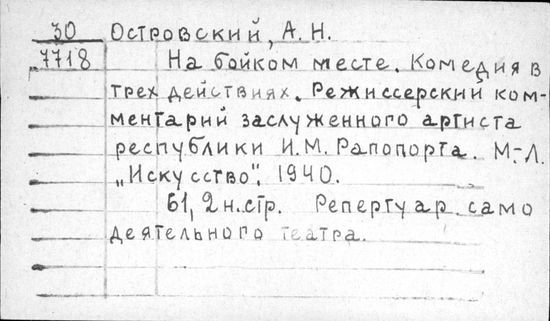 30 Островский, А. Н.
7718 На бойком месте. Комедия в
трех действиях. Режиссерский ком-
ментарий заслуженного артиста
республики И.М. Рапопорта. М.-Л.
„Искусство". 1940.
61, 2 н. стр. Репертуар само
деятельного театра.